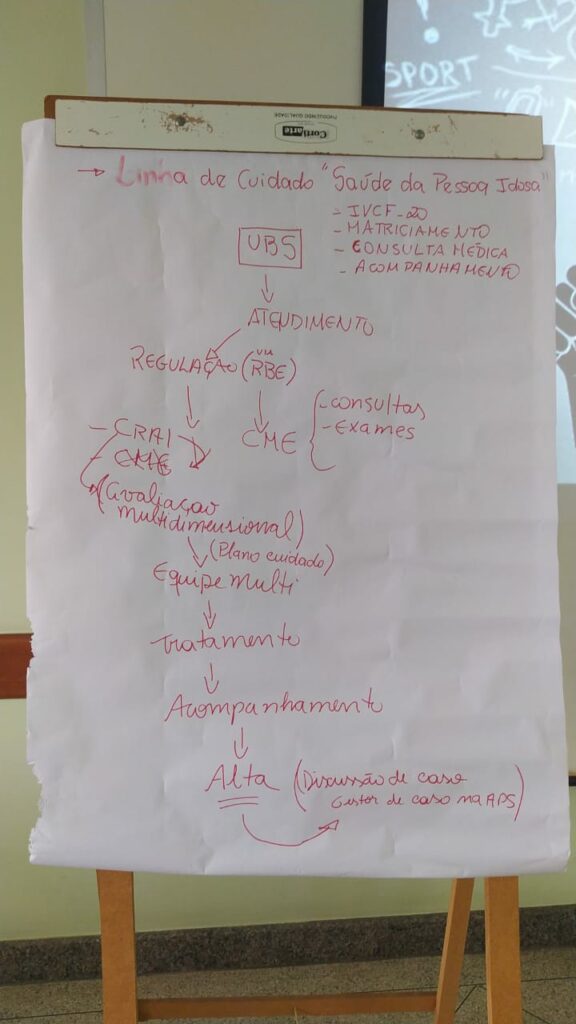 SPORT
Cortiarte
PRODUZINDO QUALIDADE
→ Linha de Cuidado "Saúde da Pessoa Idosa"
- IVCF-20
- MATRICIAMENTO
- CONSULTA MÉDICA
- ACOMPANHAMENTO
UBS
ATENDIMENTO
REGULAÇÃO (VIA RBE)
- CRAI
- CME
CME
- Consultas
- Exames
(Avaliação
multidimensional)
(Plano cuidado)
Equipe multi
Tratamento
Acompanhamento
Alta
(Discussão de caso
Gestor de caso na APS)